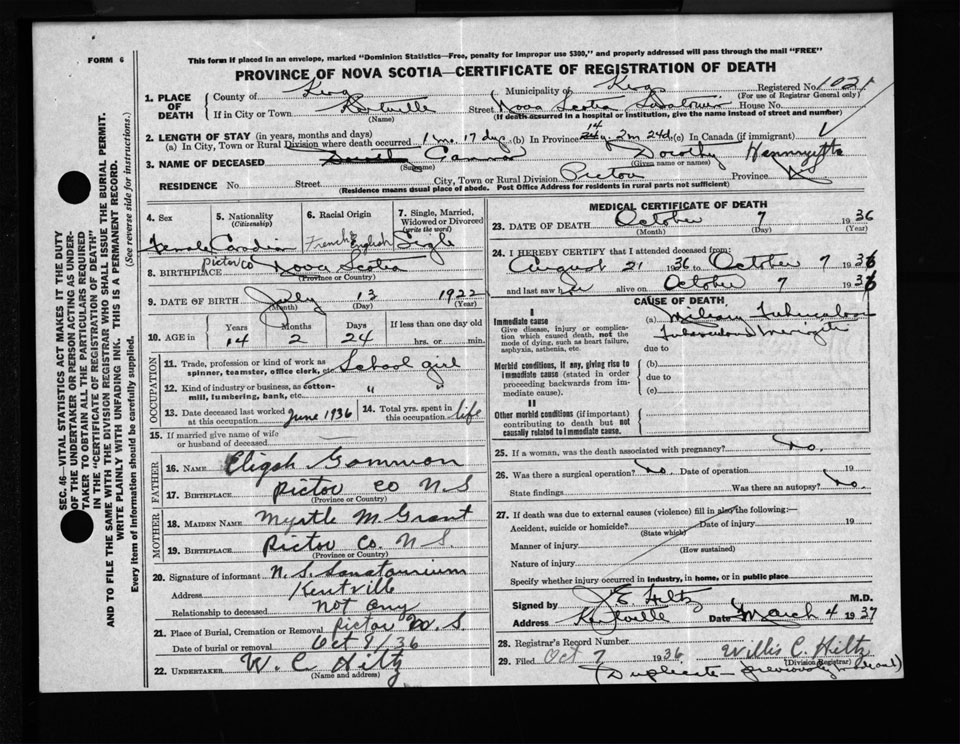 FORM 6
This form if placed in an envelope, marked "Dominion Statistics—Free, penalty for improper use $300," and properly addressed will pass through the mail "FREE"
PROVINCE OF NOVA SCOTIA—CERTIFICATE OF REGISTRATION OF DEATH
SEC. 46— VITAL STATISTICS ACT MAKES IT THE DUTY
OF THE UNDERTAKER OR PERSON ACTING AS UNDER-
TAKER TO OBTAIN ALL THE PARTICULARS REQUIRED
IN THE "CERTIFICATE OF REGISTRATION OF DEATH"
AND TO FILE THE SAME WITH THE DIVISION REGISTRAR WHO SHALL ISSUE THE BURIAL PERMIT.
WRITE PLAINLY WITH UNFADING INK. THIS IS A PERMANENT RECORD.
Every item of information should be carefully supplied. (See reverse side for instructions.)
1. PLACE OF DEATH
County of Kings Municipality of Kings Registered No. 1021
(For use of Registrar General only)
If in City or Town Kentville Street Nova Scotia Sanatorium House No.
(Name) (If death occurred in a hospital or institution, give the name instead of street and number)
2. LENGTH OF STAY (in years, months and days)
(a) In City, Town or Rural Division where death occurred 1 mo. 17 dys (b) In Province 14 y. 2m 24d. (c) In Canada (if immigrant)
3. NAME OF DECEASED Dorothy
(Surname) (Given name or names)
RESIDENCE No. Street City, Town or Rural Division Pictou Province N.S.
(Residence means usual place of abode. Post Office Address for residents in rural parts not sufficient)
4. Sex
Female
5. Nationality
(Citizenship)
Canadian
6. Racial Origin
French & English
7. Single, Married, Widowed or Divorced
(write the word)
Single
8. BIRTHPLACE Pictou Co Nova Scotia
(Province or Country)
9. DATE OF BIRTH July 13 1922
(Month) (Day) (Year)
10. AGE in Years Months Days If less than one day old
14 2 24 hrs. or min.
OCCUPATION
11. Trade, profession or kind of work as spinner, teamster, office clerk, etc. School girl
12. Kind of industry or business, as cotton-mill, lumbering, bank, etc. " "
13. Date deceased last worked at this occupation June 1936
14. Total yrs. spent in this occupation life
15. If married give name of wife or husband of deceased
FATHER
16. NAME Elijah Gammon
17. BIRTHPLACE Pictou Co N S
(Province or Country)
MOTHER
18. MAIDEN NAME Myrtle M. Grant
19. BIRTHPLACE Pictou Co. N S.
(Province or Country)
20. Signature of informant N. S. Sanatorium
Address Kentville
Relationship to deceased not any
21. Place of Burial, Cremation or Removal Pictou N. S.
Date of burial or removal Oct 8/36
22. UNDERTAKER W. C Hiltz
(Name and address)
MEDICAL CERTIFICATE OF DEATH
23. DATE OF DEATH October 7 1936
(Month) (Day) (Year)
24. I HEREBY CERTIFY that I attended deceased from:
August 21 1936 to October 7 1936
and last saw her alive on October 7 1936
CAUSE OF DEATH
I
Immediate cause
Give disease, injury or complication which caused death, not the mode of dying, such as heart failure, asphyxia, asthenia, etc.
(a) Miliary Tuberculosis
Tuberculous Meningitis
due to
Morbid conditions, if any, giving rise to immediate cause (stated in order proceeding backwards from immediate cause).
(b)
due to
(c)
II
Other morbid conditions (if important) contributing to death but not causally related to immediate cause.
25. If a woman, was the death associated with pregnancy? No.
26. Was there a surgical operation? No. Date of operation 19
State findings Was there an autopsy? No.
27. If death was due to external causes (violence) fill in also the following:—
Accident, suicide or homicide? Date of injury 19
(State which)
Manner of injury
(How sustained)
Nature of injury
Specify whether injury occurred in industry, in home, or in public place
Signed by J. E. Hiltz M.D.
Address Kentville Date March 4 1937
28. Registrar's Record Number
29. Filed Oct 7 1936 Willis C. Hiltz
(Division Registrar)
(Duplicate previously